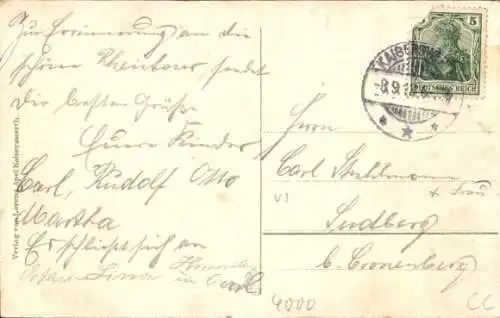 Zur Erinnerung an die
schöne Rheintour, sendet
die besten Grüße
Eure Kinder
Carl, Rudolf Otto
Martha
Er schließt sich an
Lina
Carl
Verlag von Lorenz Apel Kaiserswerth.
5
DEUTSCHES REICH
KAISERSWERTH
8.9.
Herrn
Carl Stuhlmann
+ Frau
VS
Sudberg
b. Cronenberg
4000
CC